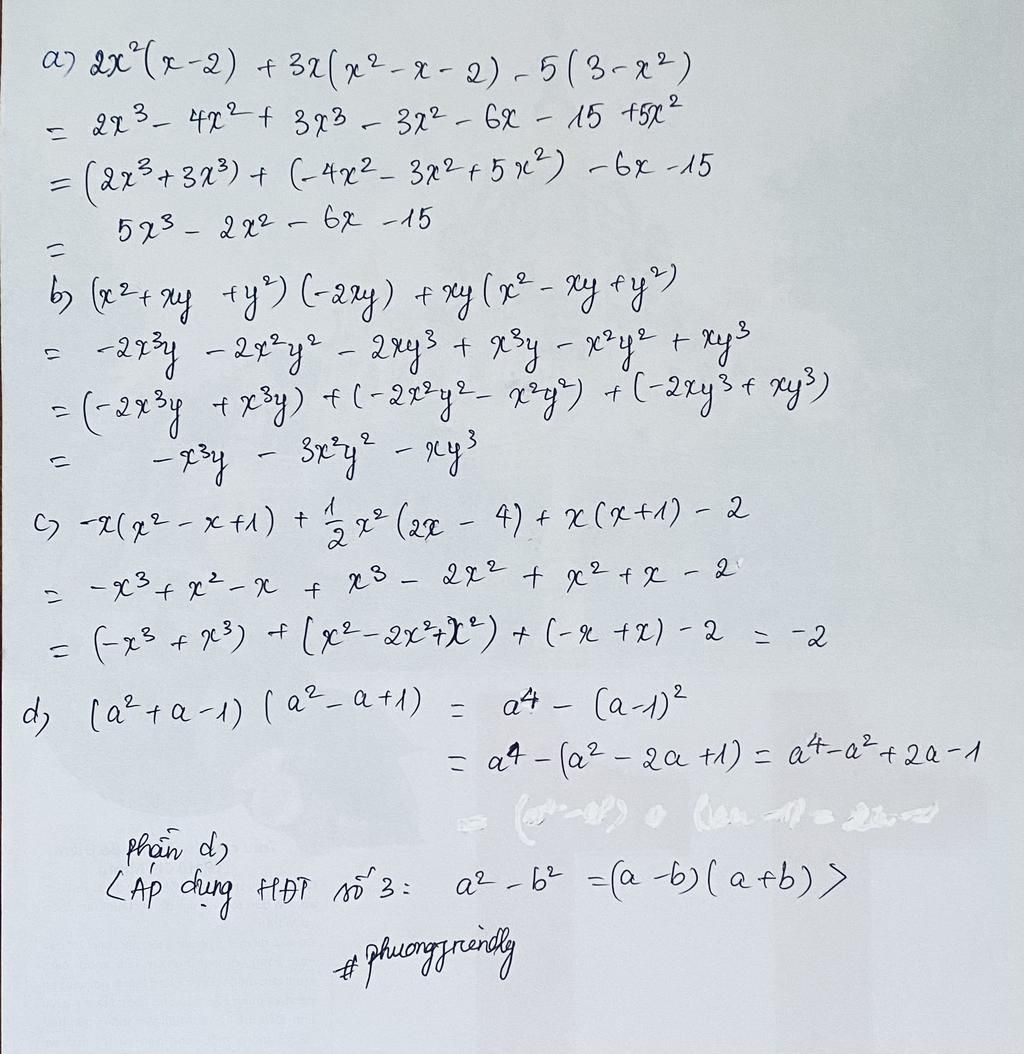 a) 2x²(x-2) + 3x(x² - x - 2) - 5(3 - x²)
= 2x³ - 4x² + 3x³ - 3x² - 6x - 15 + 5x²
= (2x³ + 3x³) + (-4x² - 3x² + 5x²) - 6x - 15
= 5x³ - 2x² - 6x - 15
b) (x² + xy + y²)(-2xy) + xy(x² - xy + y²)
= -2x³y - 2x²y² - 2xy³ + x³y - x²y² + xy³
= (-2x³y + x³y) + (-2x²y² - x²y²) + (-2xy³ + xy³)
= -x³y - 3x²y² - xy³
c) -x(x² - x + 1) + 1/2 x²(2x - 4) + x(x+1) - 2
= -x³ + x² - x + x³ - 2x² + x² + x - 2
= (-x³ + x³) + (x² - 2x² + x²) + (-x + x) - 2 = -2
d) (a² + a - 1)(a² - a + 1) = a⁴ - (a-1)²
= a⁴ - (a² - 2a + 1) = a⁴ - a² + 2a - 1
phần d)
<Áp dụng HĐT số 3: a² - b² = (a - b)(a + b)>
#phuongfriendly